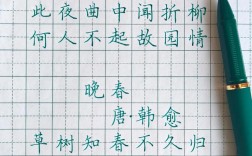 此夜曲中闻折柳
何人不起故园情
晚春
唐·韩愈
草树知春不久归